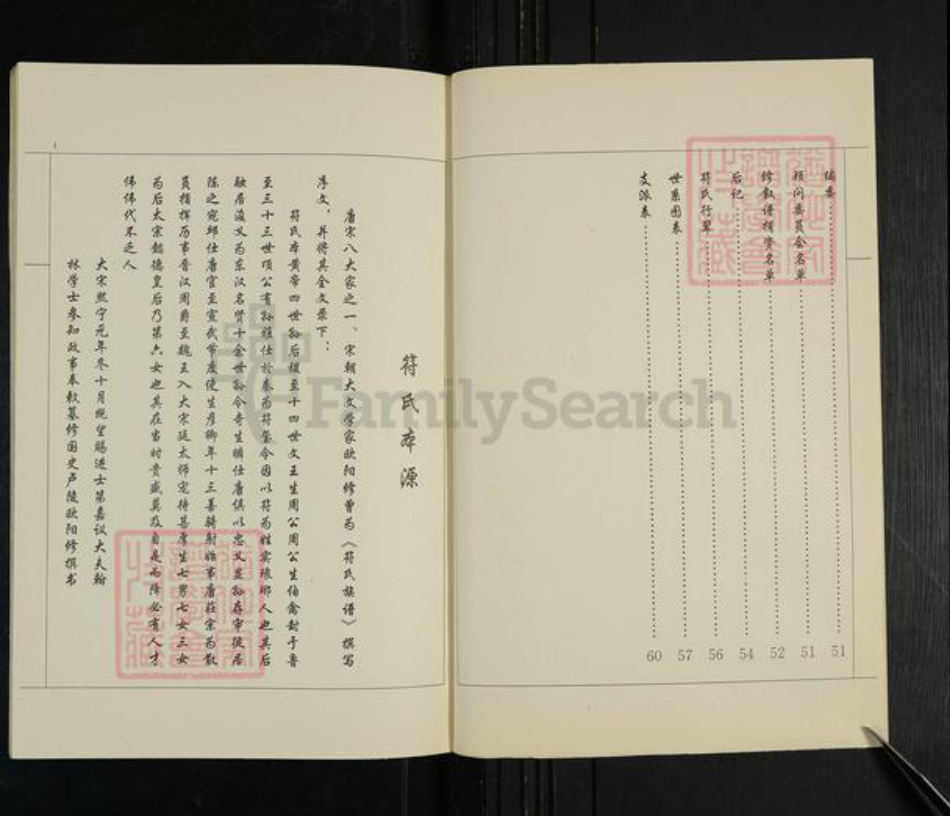 编委 51
顾问委员会名单 51
修叙谱捐资名单 52
后记 54
符氏行辈 56
世系图表 57
支派表 60
符氏本源
唐宋八大家之一、宋朝大文学家欧阳修曾为《符氏族谱》撰写
序文，并将其全文录下：
符氏本黄帝四世孙后稷至十四世文王生周公周公生伯禽封于鲁
至三十三世顷公有孙雅仕於秦为符玺令因以符为姓实琅琊人也其后
融居浚义为东汉名贤十余世孙令奇生璘仕唐俱以忠义显孙存审徙居
陈之宛邱仕唐官至宣武节度使生彦卿年十三善骑射始事唐莊宗为散
员指挥历事晋汉周爵至魏王入大宋廷太师宠待甚厚生七男七女三女
为后太宗懿德皇后乃第六女也其在当时贵盛莫及自是而降必有人才
伟伟代不乏人
大宋熙宁元年冬十月既望赐进士第嘉议大夫翰
林学士参知政事奉敕纂修国史卢陵欧阳修撰书
1
FamilySearch